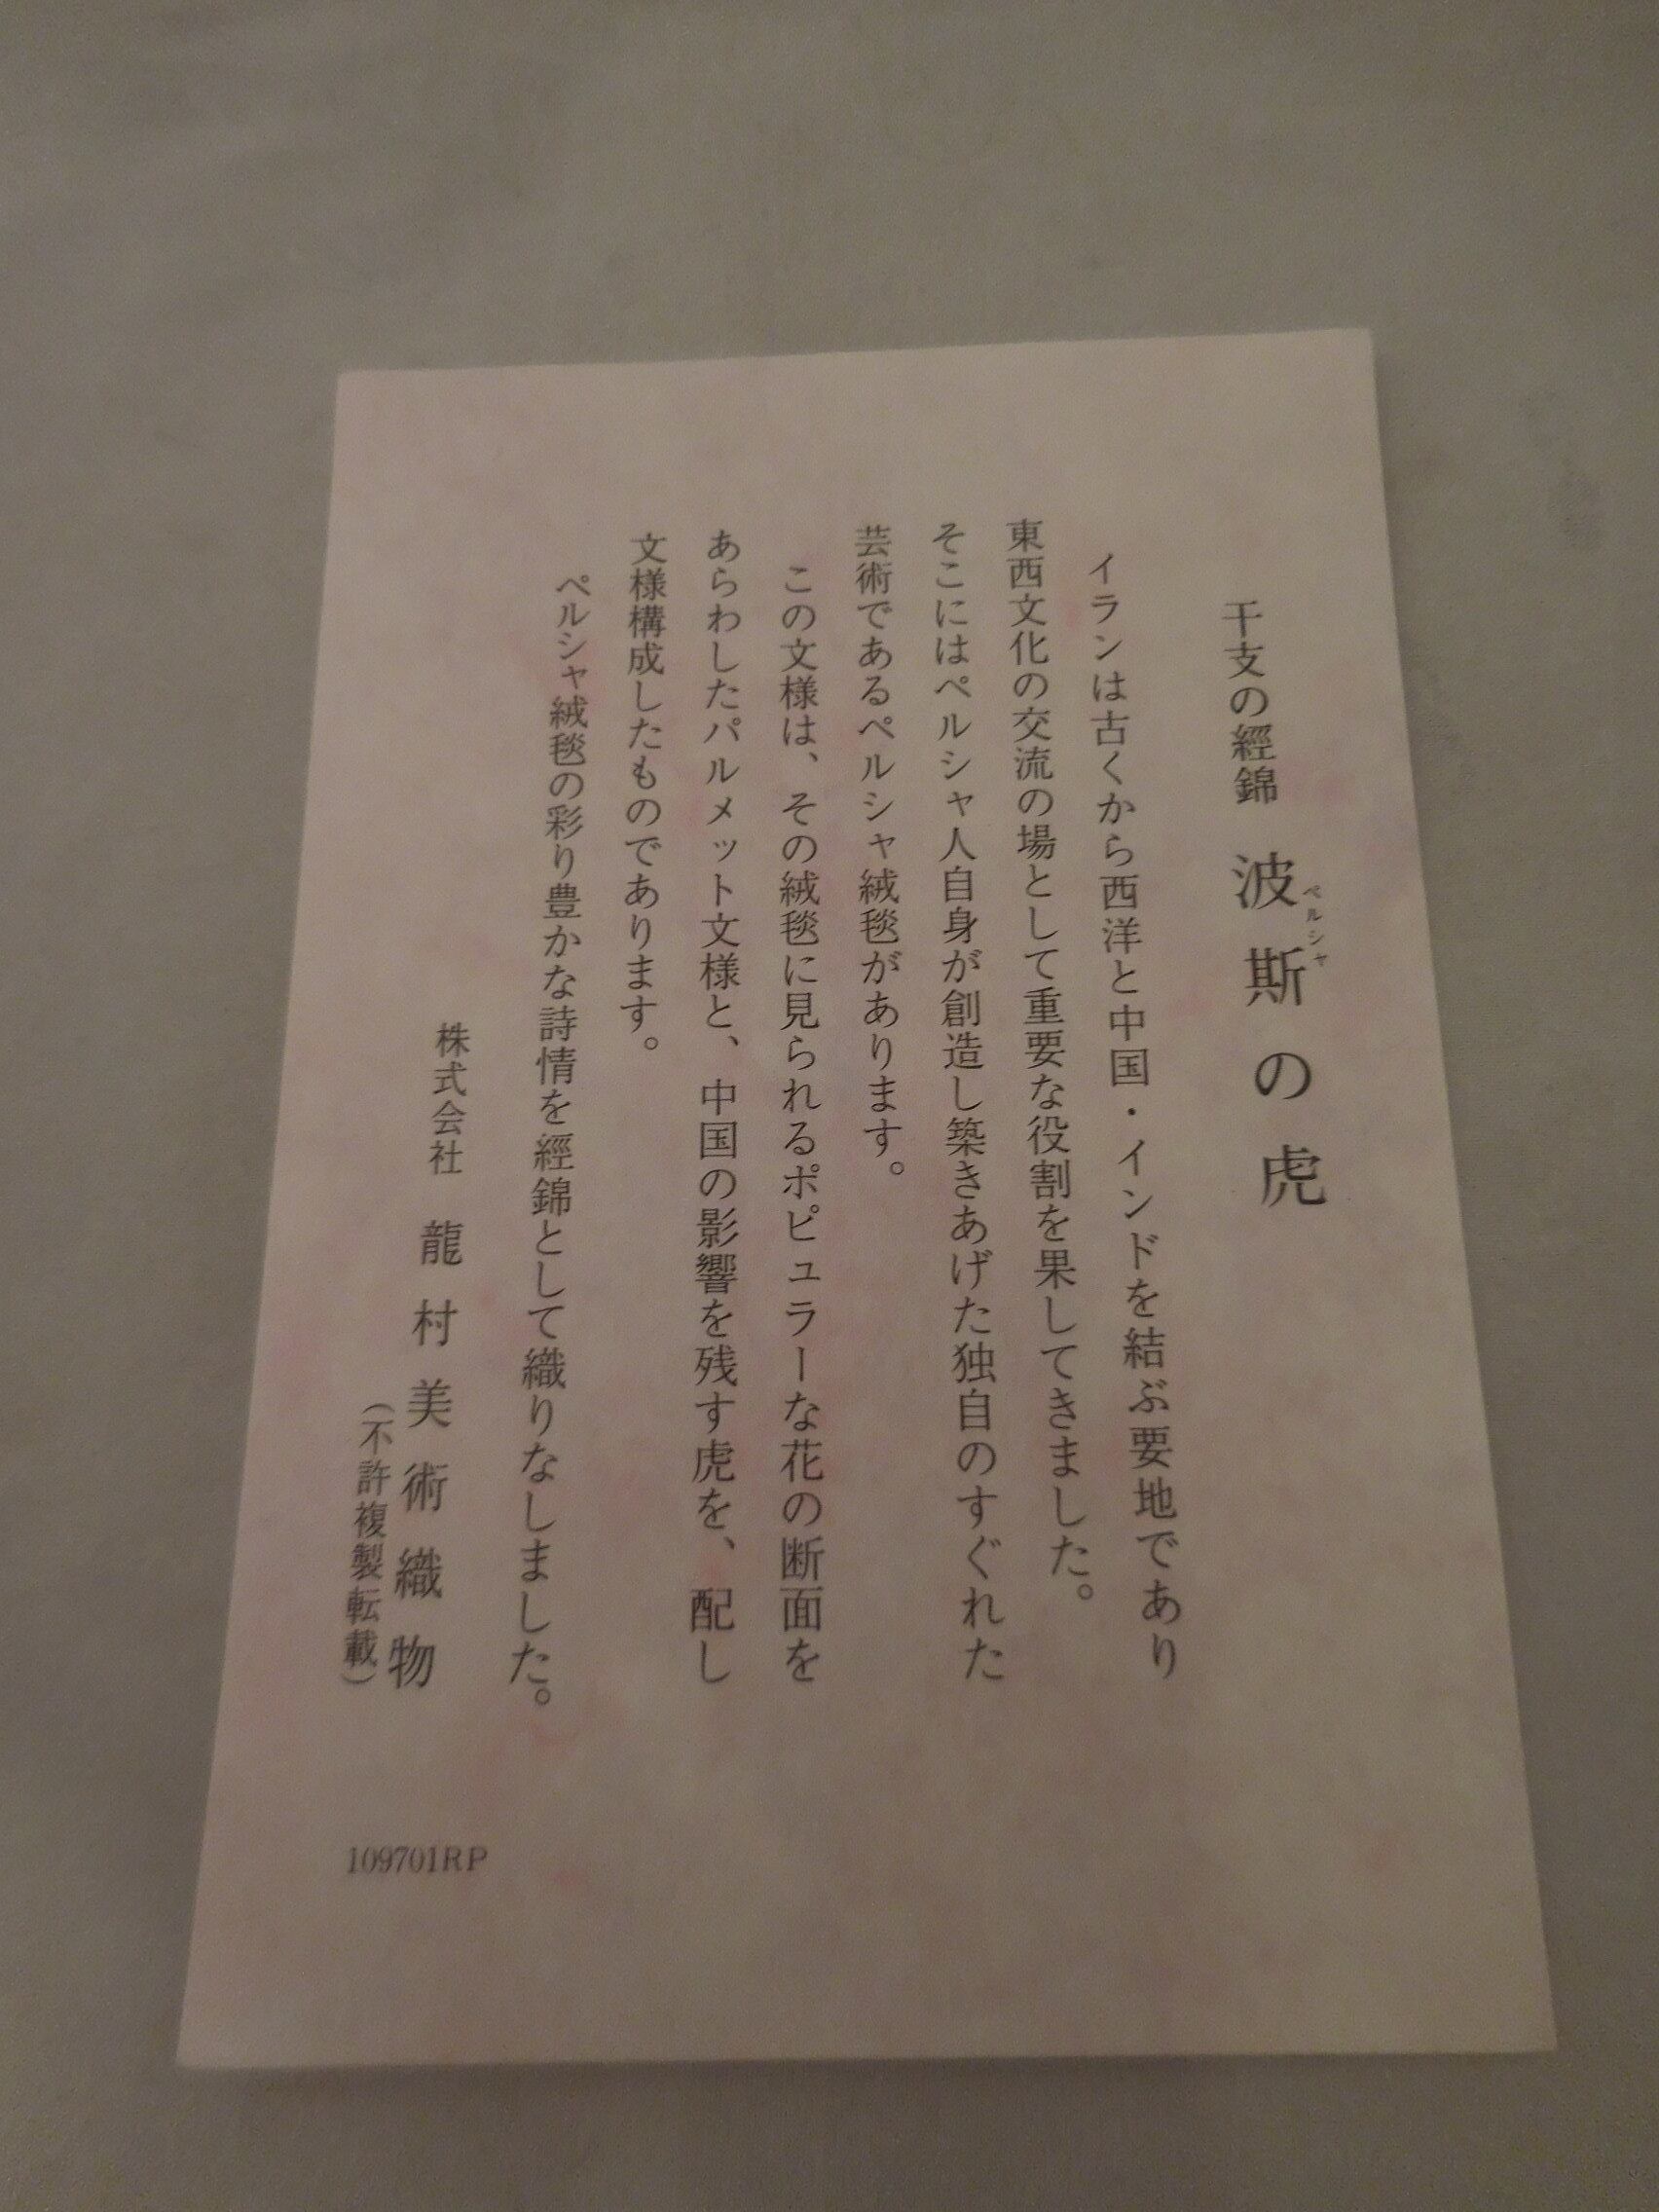 干支の經錦　波斯の虎
ペルシャ
イランは古くから西洋と中国・インドを結ぶ要地であり
東西文化の交流の場として重要な役割を果してきました。
そこにはペルシャ人自身が創造し築きあげた独自のすぐれた
芸術であるペルシャ絨毯があります。
この文様は、その絨毯に見られるポピュラーな花の断面を
あらわしたパルメット文様と、中国の影響を残す虎を、配し
文様構成したものであります。
ペルシャ絨毯の彩り豊かな詩情を經錦として織りなしました。
株式会社　龍村美術織物
（不許複製転載）
109701RP